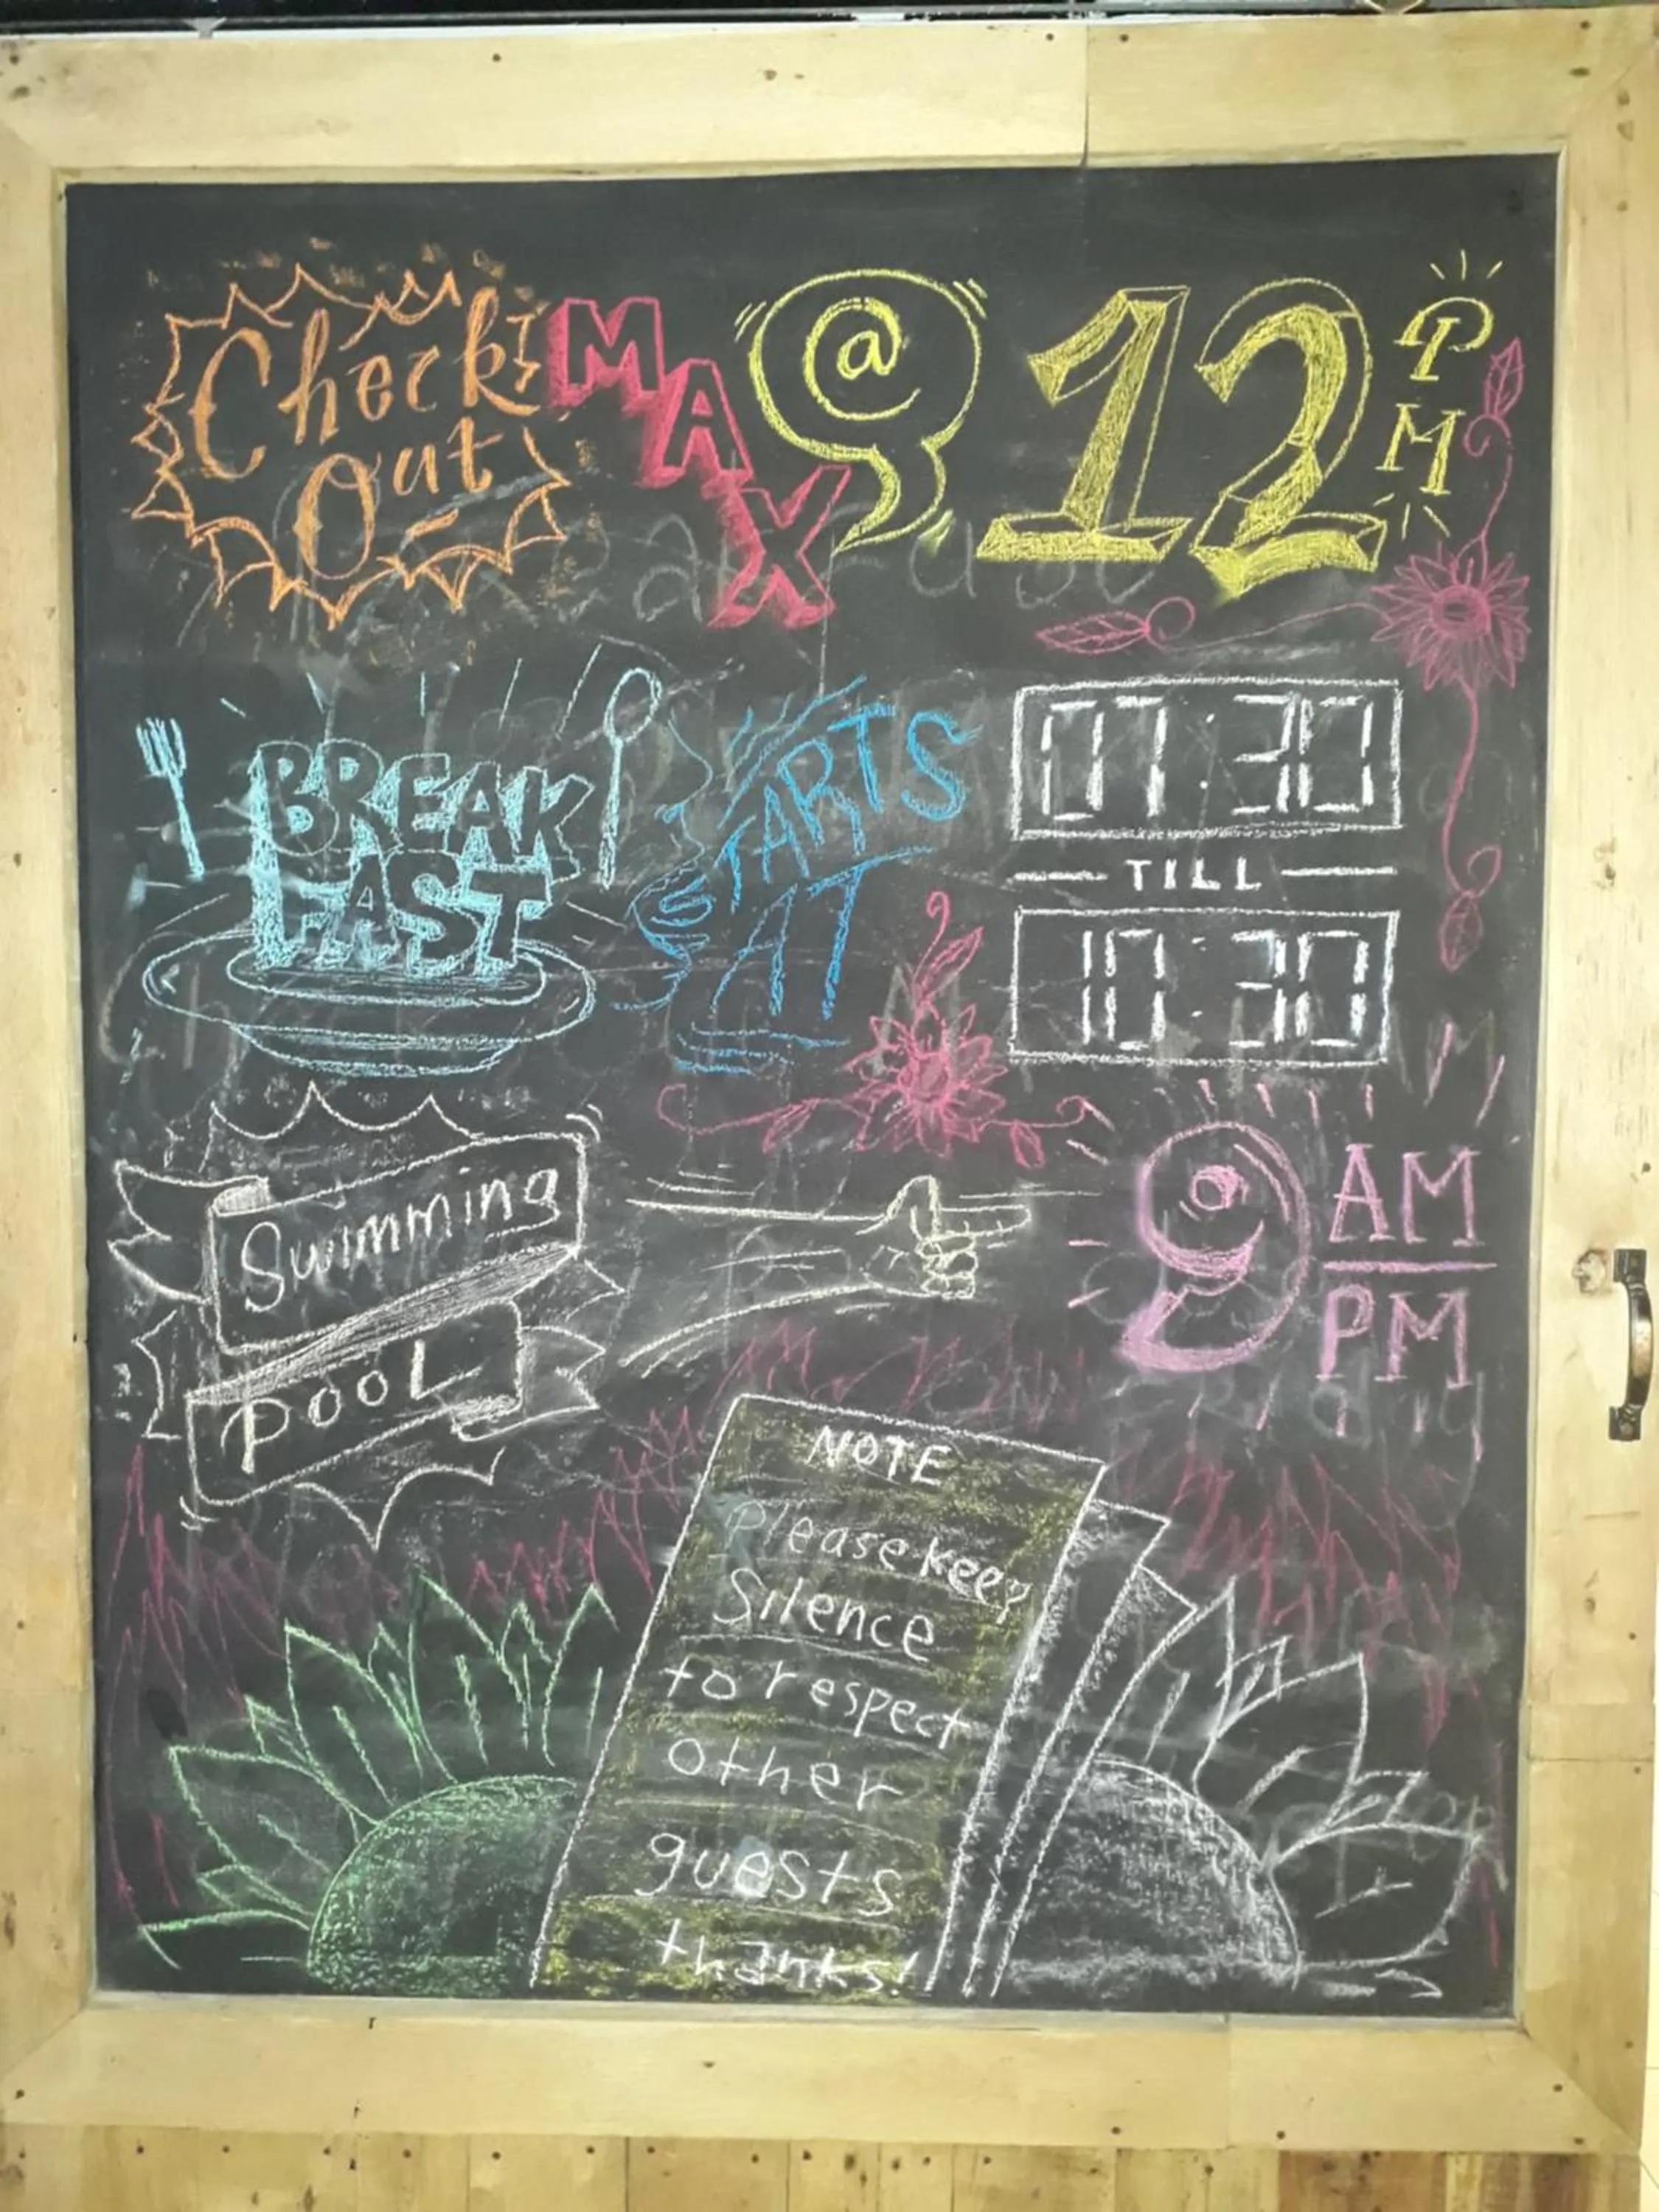 Check
Out
MAX
@
12
PM
BREAK
FAST
STARTS
AT
07:30
TILL
10:30
Swimming
POOL
9
AM
PM
NOTE
Please keep
Silence
to respect
other
guests
thanks!